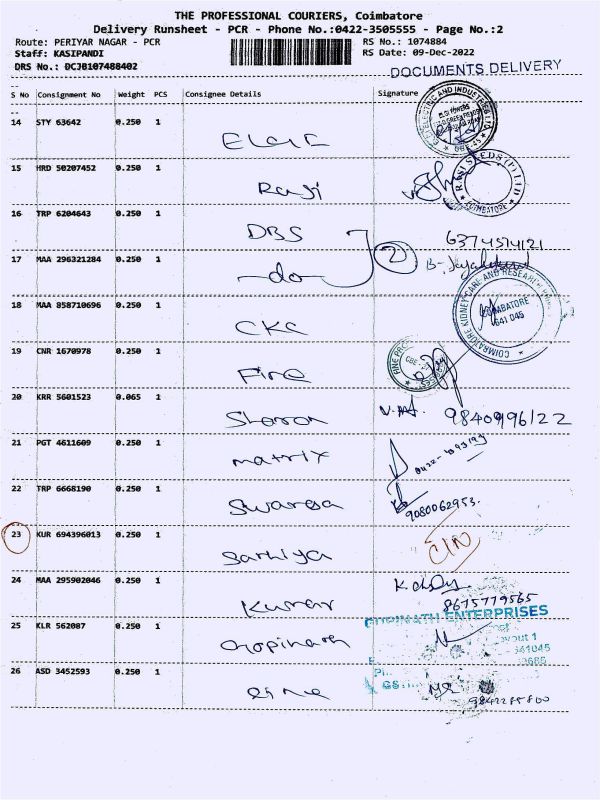 THE PROFESSIONAL COURIERS, Coimbatore
Delivery Runsheet - PCR - Phone No.:0422-3505555 - Page No.:2
Route: PERIYAR NAGAR - PCR
RS No.: 1074884
Staff: KASIPANDI
RS Date: 09-Dec-2022
DRS No.: DCJB107488402
DOCUMENTS DELIVERY
S No Consignment No Weight PCS Consignee Details Signature
14 STY 63642 0.250 1
15 HRD 50207452 0.250 1
Rasi
RASI SEEDS (P) LTD
COIMBATORE
16 TRP 6204643 0.250 1
DBS
6374574121
17 MAA 296321284 0.250 1
-do-
2
18 MAA 858710696 0.250 1
CKC
COIMBATORE KIDNEY CARE AND RESEARCH
COIMBATORE
641 045
19 CNR 1670978 0.250 1
Fine
20 KRR 5601523 0.065 1
Sharon
9840996122
21 PGT 4611609 0.250 1
matrix
22 TRP 6668190 0.250 1
Swarga
9080062953.
23 KUR 694396013 0.250 1
Sathiya
24 MAA 295902046 0.250 1
Kumar
8675779565
25 KLR 562087 0.250 1
Gopinath
GOPINATH ENTERPRISES
26 ASD 3452593 0.250 1